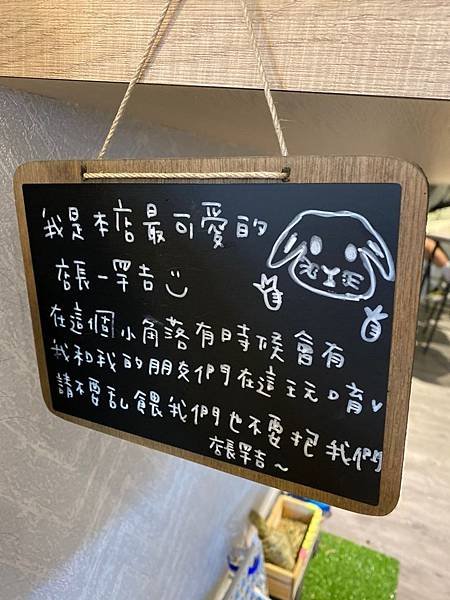 我是本店最可愛的
店長-罕吉
在這個小角落有時候會有
我和我的朋友們在這玩唷
請不要亂餵我們也不要抱我們
店長罕吉~